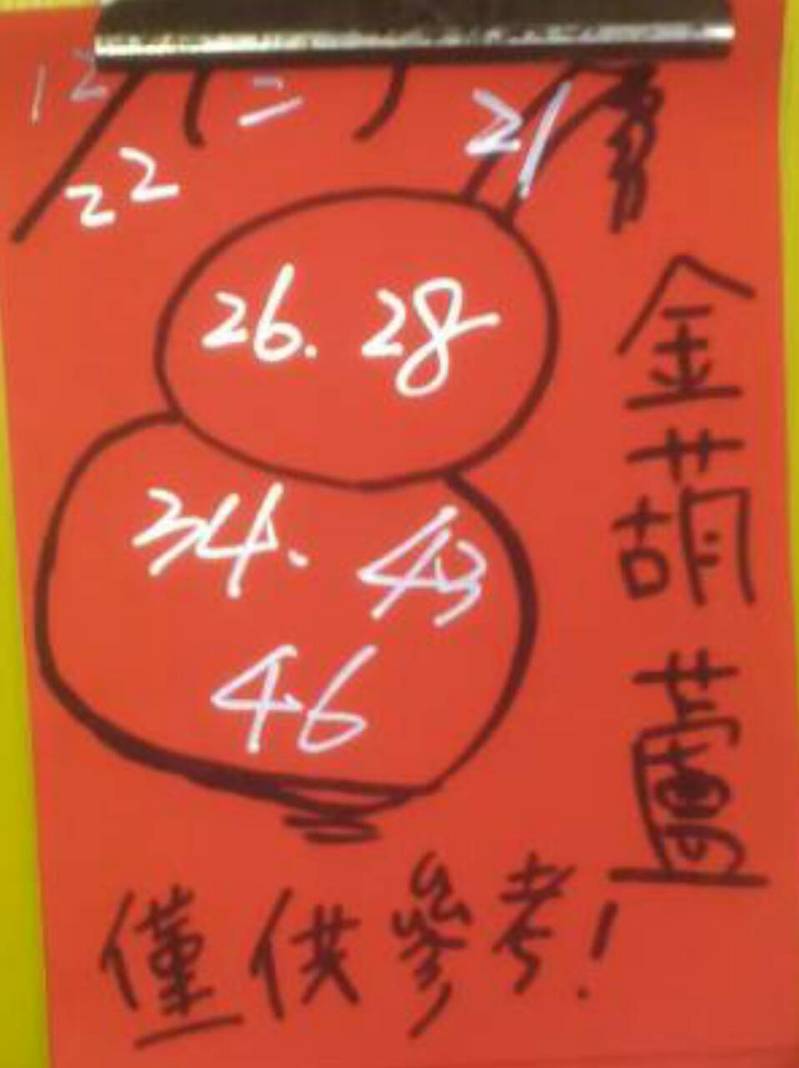 12
22
21
26. 28
34. 43
46
金葫蘆
僅供參考!